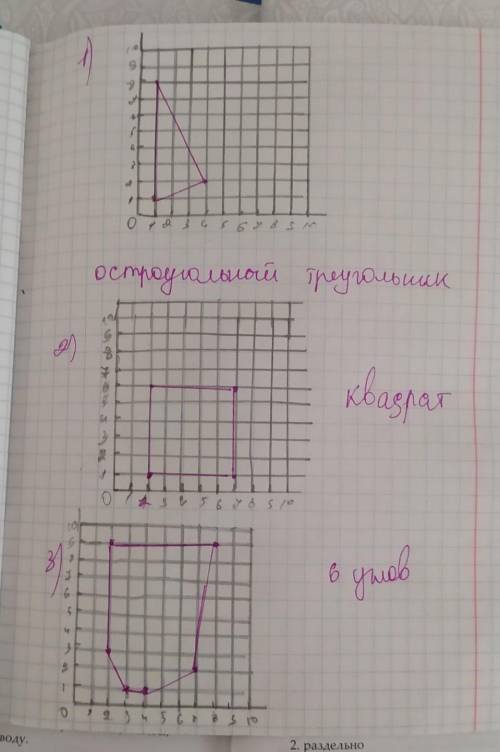 1)
10
9
8
7
6
5
4
3
2
1
0 1 2 3 4 5 6 7 8 9 10
остроугольный треугольник
2)
10
9
8
7
6
5
4
3
2
1
0 1 2 3 4 5 6 7 8 9 10
квадрат
3)
10
9
8
7
6
5
4
3
2
1
0 1 2 3 4 5 6 7 8 9 10
6 углов
воду.
2. раздельно